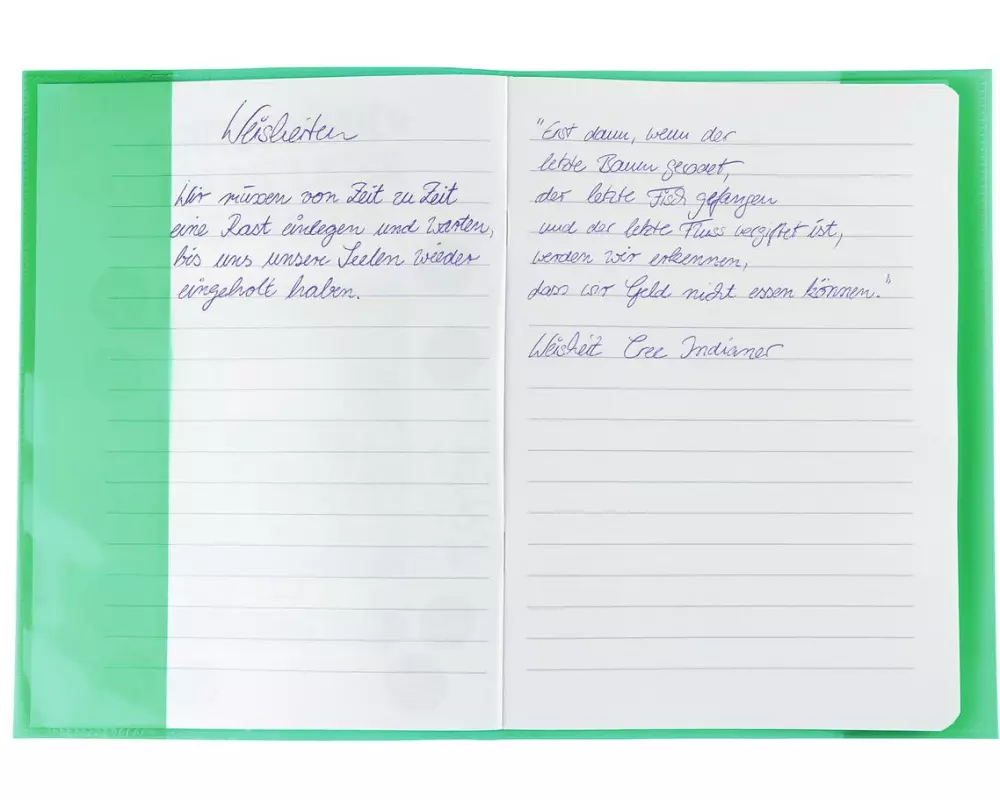 Weisheiten
Wir müssen von Zeit zu Zeit
eine Rast einlegen und warten,
bis uns unsere Seelen wieder
eingeholt haben.
"Erst dann, wenn der
letzte Baum gerodet,
der letzte Fisch gefangen
und der letzte Fluss vergiftet ist,
werden wir erkennen,
dass wir Geld nicht essen können."
Weisheit Cree Indianer